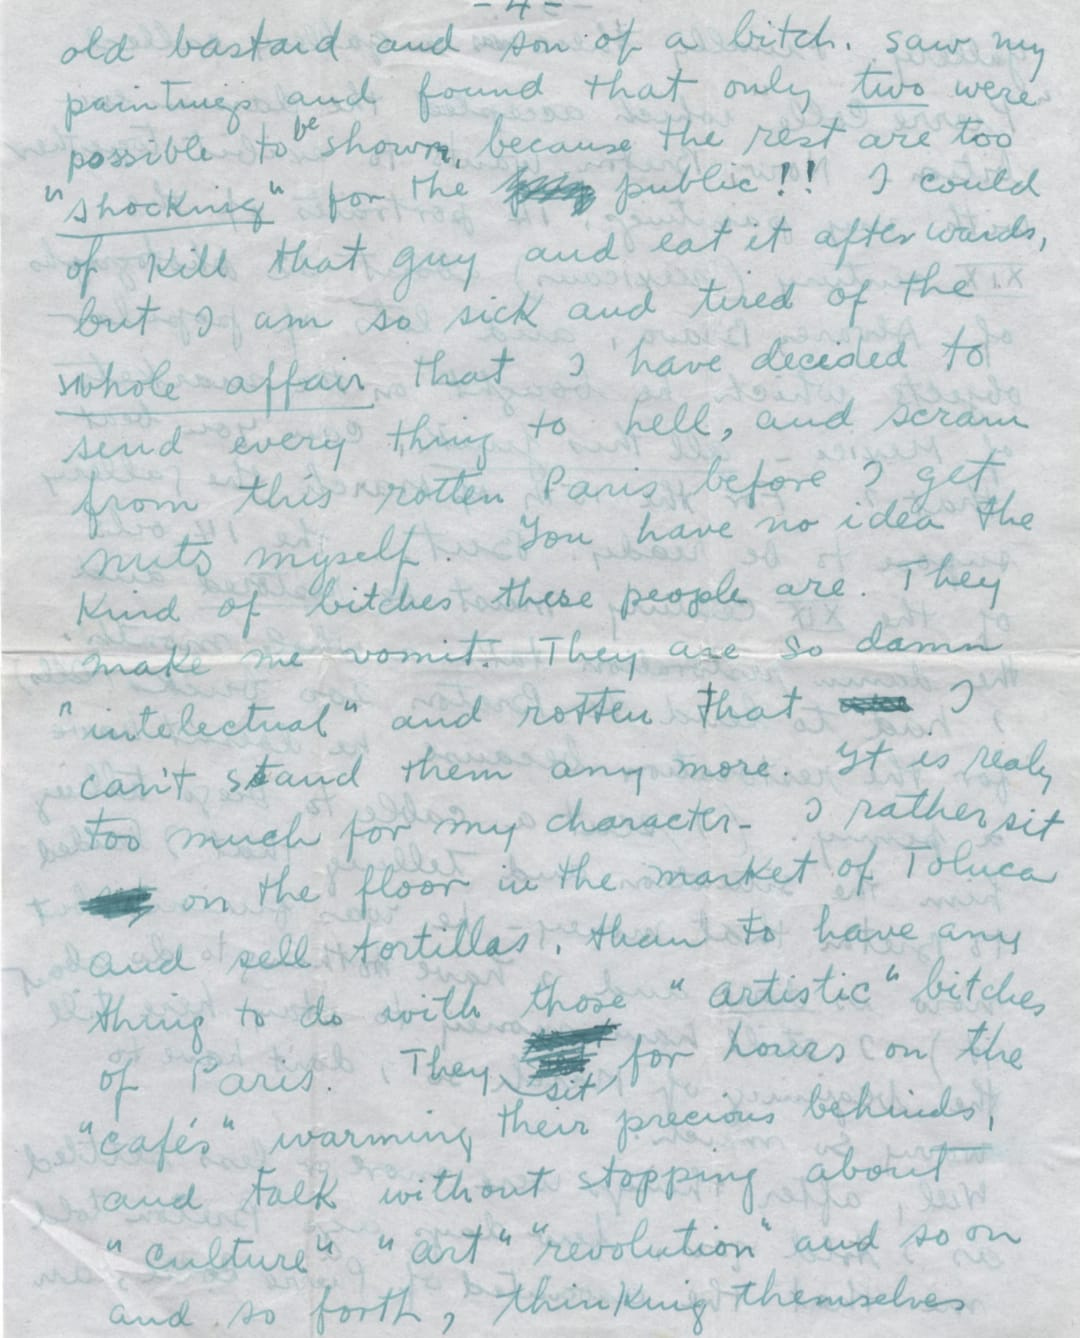 -4-
old bastard and son of a bitch, saw my
paintings and found that only two were
possible to be shown, because the rest are too
"shocking" for the public!! I could
of kill that guy and eat it afterwards,
but I am so sick and tired of the
whole affair that I have decided to
send every thing to hell, and scram
from this rotten Paris before I get
nuts myself. You have no idea the
kind of bitches these people are. They
make me vomit. They are so damn
"intelectual" and rotten that I
can't stand them any more. It is realy
too much for my character - I rather sit
on the floor in the market of Toluca
and sell tortillas, than to have any
thing to do with those "artistic" bitches
of Paris. They sit for hours on the
"cafés" warming their precious behinds,
and talk without stopping about
"culture" "art" "revolution" and so on
and so forth, thinking themselves